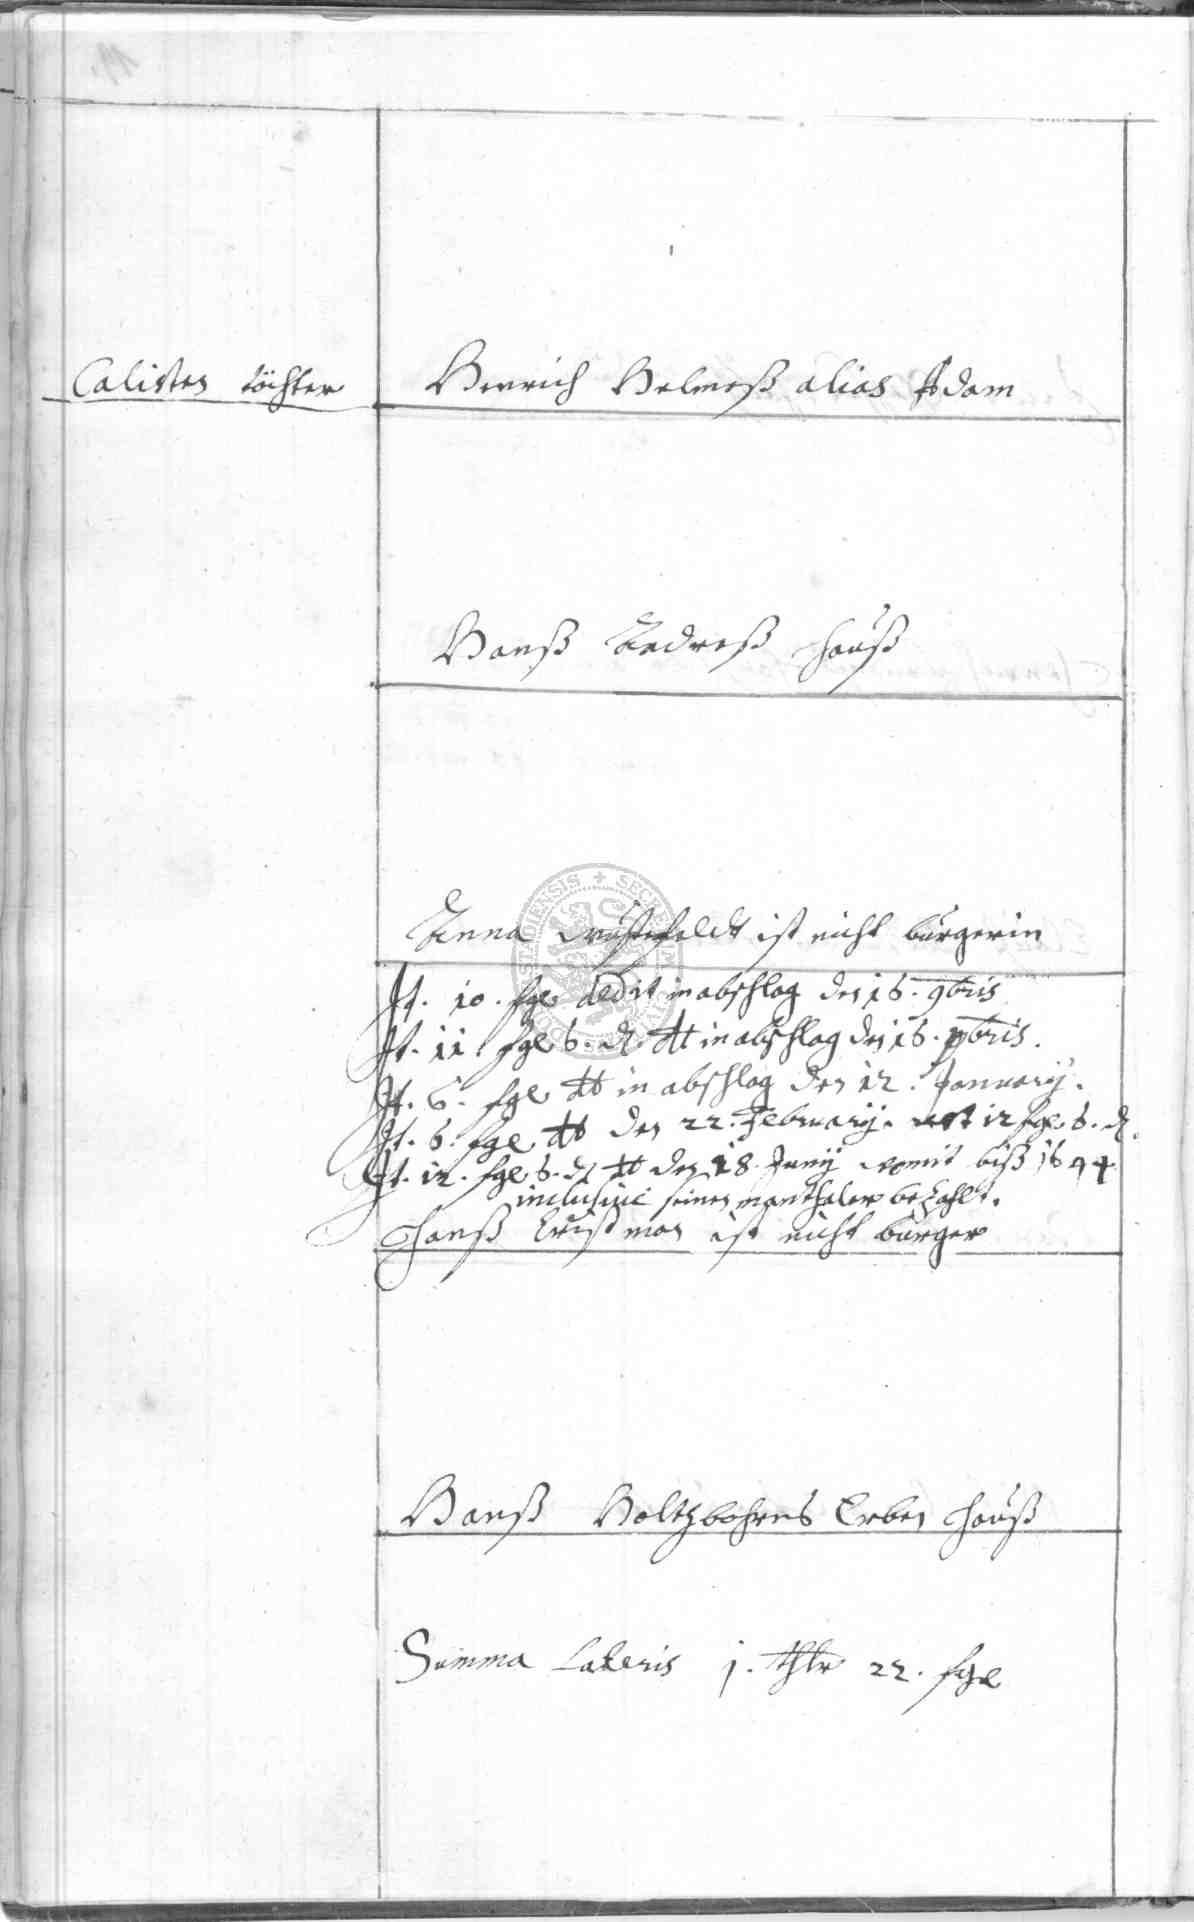 11.
Calisten töchter
Henrich Helmeß alias Adam
Hanß Andreß Hauß
Anna Wüstefeldt ist nicht bürgerin
It. 10. sgl dedit in abschlag den 16. 9bris
It. 11. sgl 6. d dt in abschlag den 16. Xbris.
It. 6. sgl dt in abschlag den 12. January.
It. 6. sgl dt den 22. February. rest 12 sgl 6. d.
It. 12. sgl 6. d dt den 18. Juny womit biß 1644
inclusive seinen manthaler bezahlt.
Hanß Cristman ist nicht bürger
Hanß Holtzbohrns Erben Hauß
Summa Lateris 1. thlr 22. sgl
SECRET